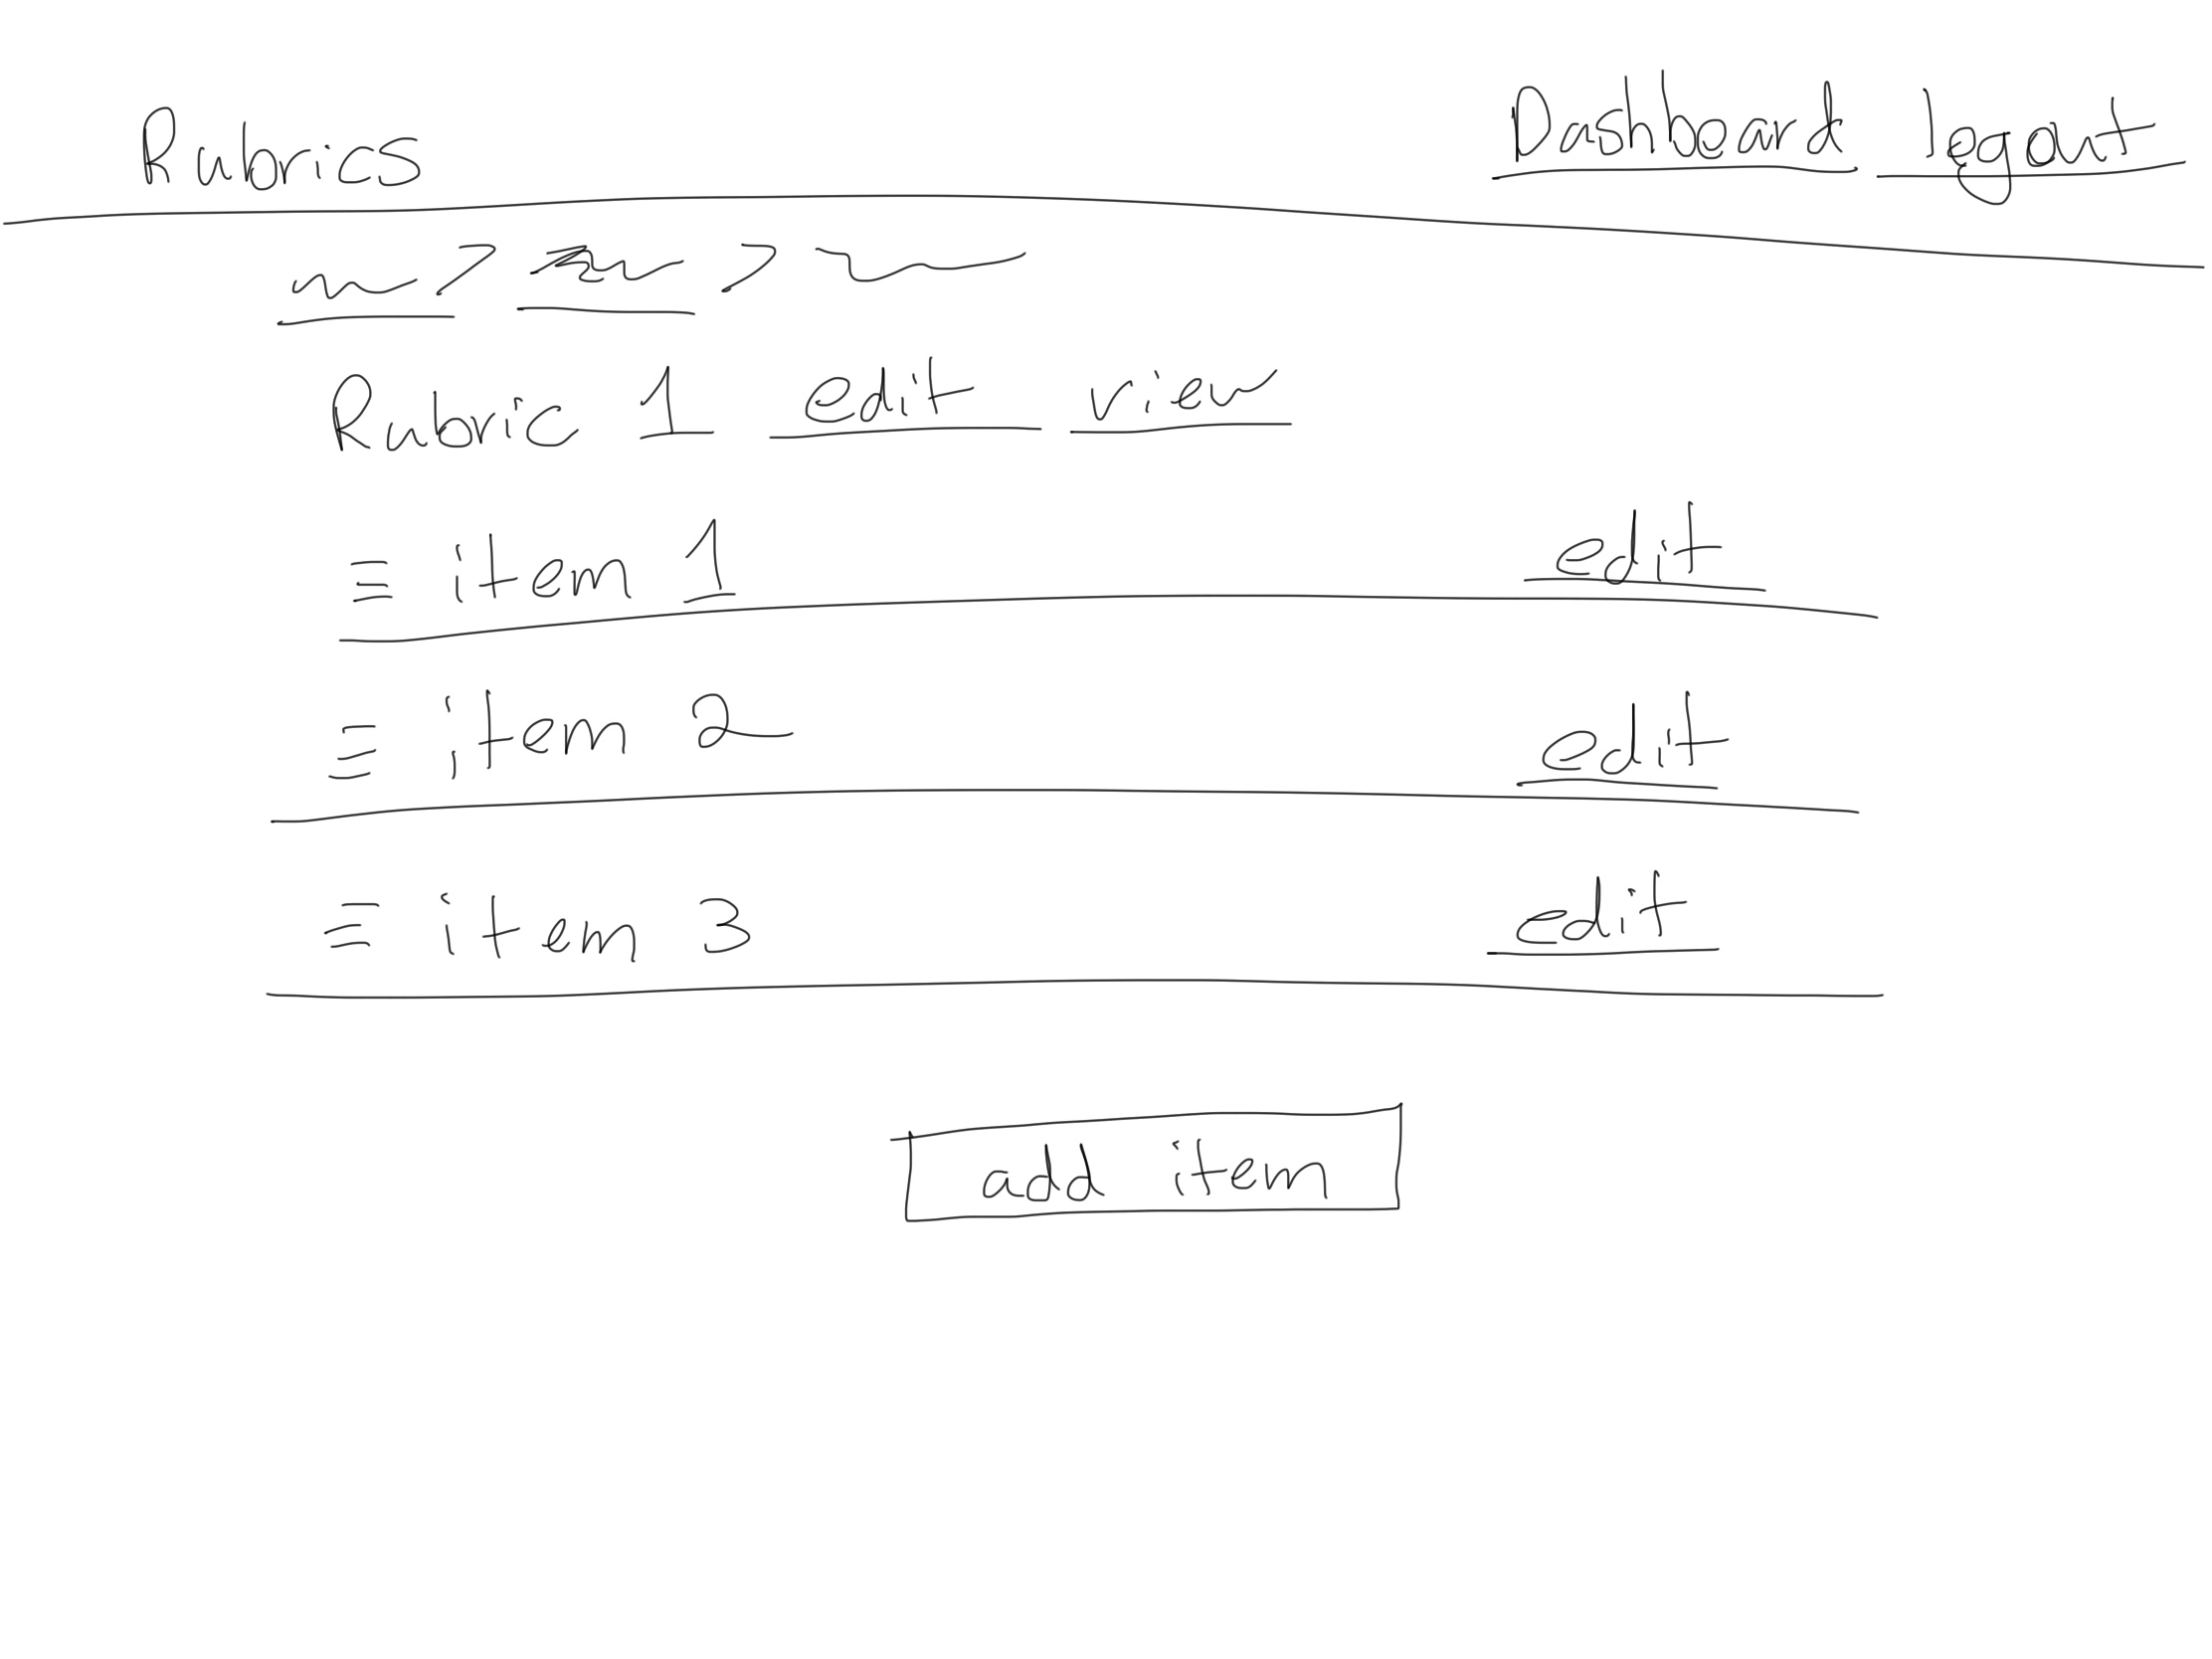 Rubrics Dashboard legout
> >
Rubric 1 edit view
≡ item 1 edit
≡ item 2 edit
≡ item 3 edit
add item